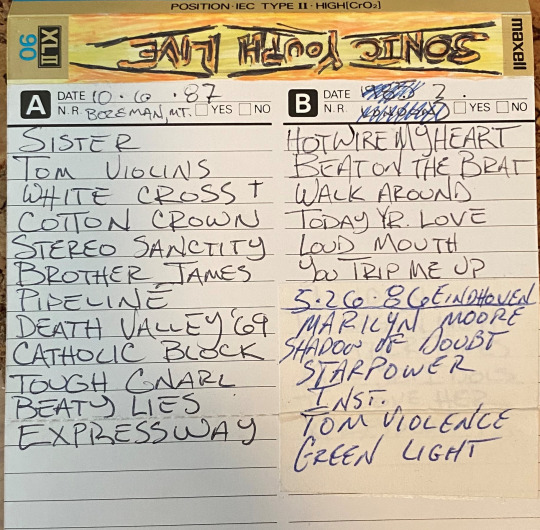 POSITION·IEC TYPE II·HIGH(CrO2)
XLII 90
SONIC YOUTH LIVE
maxell
A DATE 10·6·87
N.R. BOZEMAN, MT. YES NO
SISTER
TOM VIOLINS
WHITE CROSS †
COTTON CROWN
STEREO SANCTITY
BROTHER JAMES
PIPELINE
DEATH VALLEY '69
CATHOLIC BLOCK
TOUGH GNARL
BEATY LIES
EXPRESSWAY
B DATE ?
N.R. YES NO
HOTWIRE MY HEART
BEAT ON THE BRAT
WALK AROUND
TODAY YR. LOVE
LOUD MOUTH
YOU TRIP ME UP
5·26·86 EINDHOVEN
MARILYN MOORE
SHADOW OF DOUBT
STARPOWER
INST.
TOM VIOLENCE
GREEN LIGHT